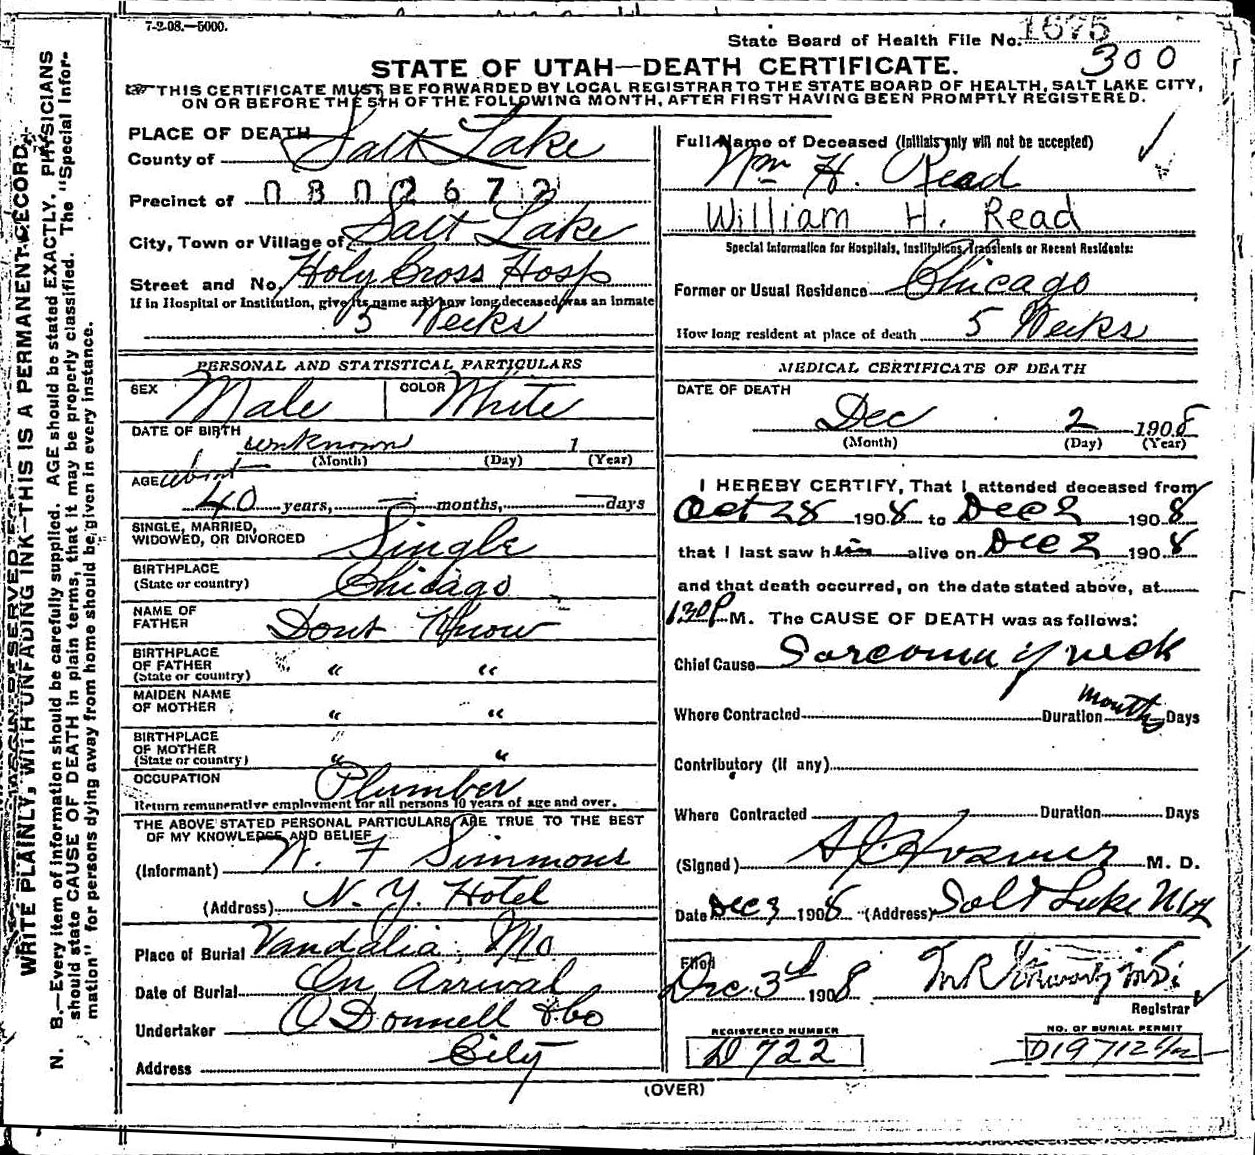 7-2-08.—5000.
State Board of Health File No. 1675
300
STATE OF UTAH—DEATH CERTIFICATE.
THIS CERTIFICATE MUST BE FORWARDED BY LOCAL REGISTRAR TO THE STATE BOARD OF HEALTH, SALT LAKE CITY,
ON OR BEFORE THE 5TH OF THE FOLLOWING MONTH, AFTER FIRST HAVING BEEN PROMPTLY REGISTERED.
WRITE PLAINLY, WITH UNFADING INK—THIS IS A PERMANENT RECORD.
N. B.—Every item of information should be carefully supplied. AGE should be stated EXACTLY. PHYSICIANS
should state CAUSE OF DEATH in plain terms, that it may be properly classified. The "Special Infor-
mation" for persons dying away from home should be given in every instance.
PLACE OF DEATH
County of Salt Lake
Precinct of 0802672
City, Town or Village of Salt Lake
Street and No. Holy Cross Hosp
If in Hospital or Institution, give its name and how long deceased was an inmate
5 Weeks
PERSONAL AND STATISTICAL PARTICULARS
SEX Male COLOR White
DATE OF BIRTH unknown 1
(Month) (Day) (Year)
AGE about
40 years, — months, — days
SINGLE, MARRIED,
WIDOWED, OR DIVORCED Single
BIRTHPLACE
(State or country) Chicago
NAME OF
FATHER Dont Know
BIRTHPLACE
OF FATHER
(State or country) " "
MAIDEN NAME
OF MOTHER " "
BIRTHPLACE
OF MOTHER
(State or country) " "
OCCUPATION Plumber
Return remunerative employment for all persons 10 years of age and over.
THE ABOVE STATED PERSONAL PARTICULARS ARE TRUE TO THE BEST
OF MY KNOWLEDGE AND BELIEF
(Informant) W. F Simmons
(Address) N. Y. Hotel
Place of Burial Vandalia, Mo
Date of Burial On Arrival
Undertaker O Donnell & Co
Address City
Full Name of Deceased (Initials only will not be accepted)
Wm H. Read
William H. Read
Special Information for Hospitals, Institutions, Transients or Recent Residents:
Former or Usual Residence Chicago
How long resident at place of death 5 Weeks
MEDICAL CERTIFICATE OF DEATH
DATE OF DEATH
Dec 2 1908
(Month) (Day) (Year)
I HEREBY CERTIFY, That I attended deceased from
Oct 28 1908 to Dec 2 1908
that I last saw him alive on Dec 2 1908
and that death occurred, on the date stated above, at
130 P. M. The CAUSE OF DEATH was as follows:
Chief Cause Sarcoma of neck
Where Contracted Duration months Days
Contributory (if any)
Where Contracted Duration Days
(Signed) M. D.
Date Dec 3 1908 (Address) Salt Lake City
Filed
Dec. 3d 1908
Registrar
REGISTERED NUMBER
D 722
NO. OF BURIAL PERMIT
D19712
(OVER)